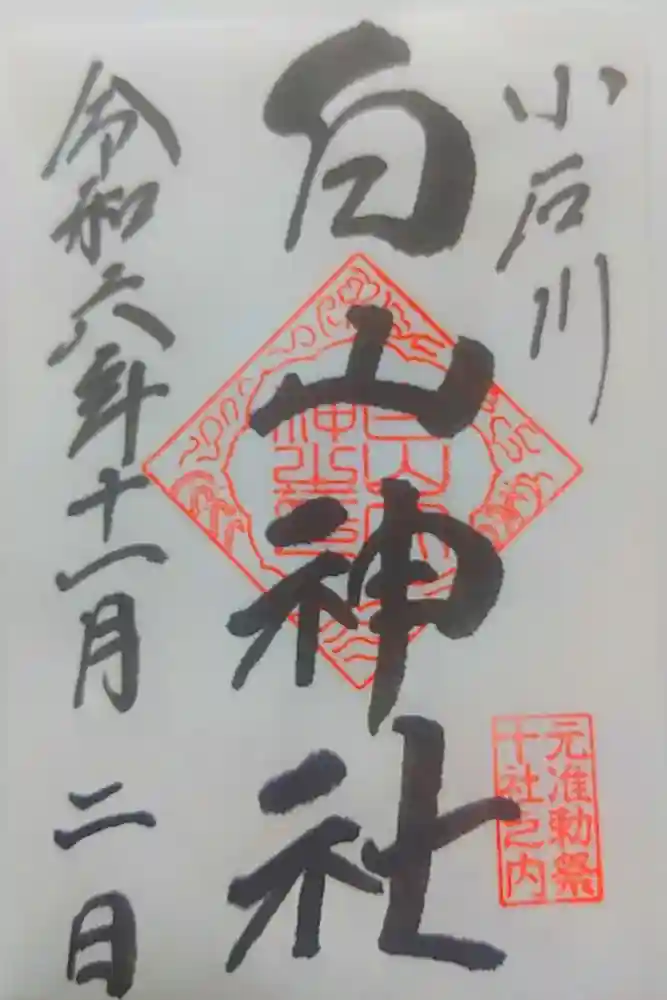 小石川
元准勅祭
十社之内
白山神社
令和六年十一月二日